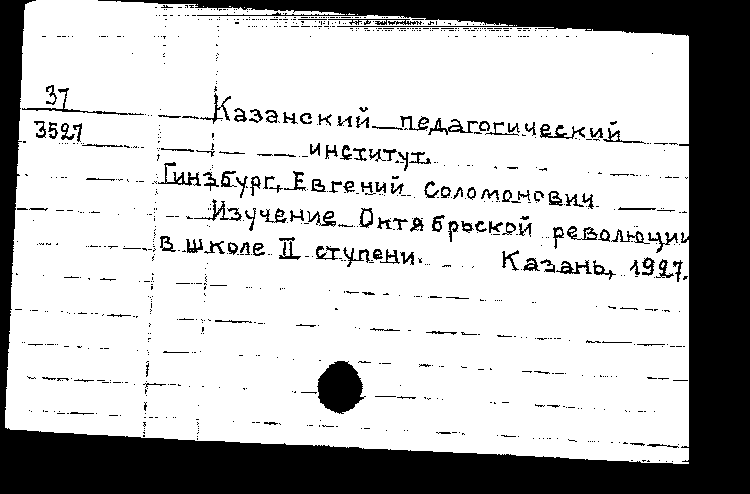 37
3527
Казанский педагогический
институт.
Гинзбург, Евгений Соломонович
Изучение Октябрьской революции
в школе II ступени. Казань, 1927.